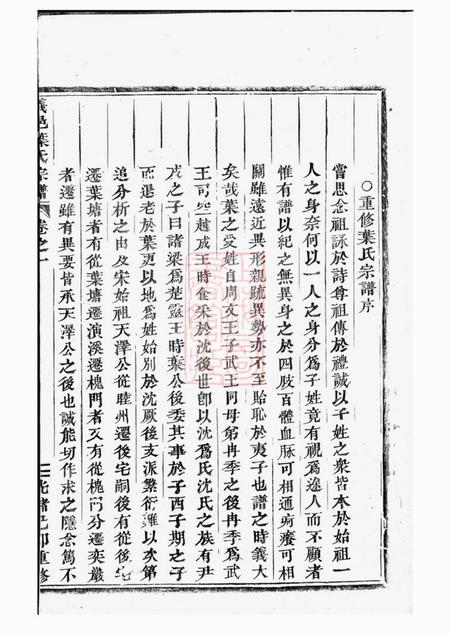 ○重修葉氏宗譜序
嘗思念祖詠於詩尊祖傳於禮誠以千姓之衆皆本於始祖一
人之身奈何以一人之身分爲子姓竟有視爲途人而不顧者
惟有譜以紀之無異身之於四肢百體血脉可相通痾癢可相
關雖遠近異形親疏異勢亦不至貽恥於夷子也譜之時義大
矣哉葉之受姓自周文王子武王同母弟冉季之後冉季爲武
王司空越成王時食采於沈後世即以沈爲氏沈氏之族有尹
戌之子曰諸梁爲楚靈王時葉公後委其事於子西子期之子
而退老於葉更以地爲姓始別於沈厥後支派繁衍難以次第
追分析之由及宋始祖天澤公從睦州遷後宅嗣後有從後宅
遷葉塘者有從葉塘遷演溪遷槐門者又有從槐門分遷奕巖
者遷雖有異要皆承天澤公之後也誠能切作求之隱念篤不
義邑葉氏宗譜
卷之一
光緒己卯重修